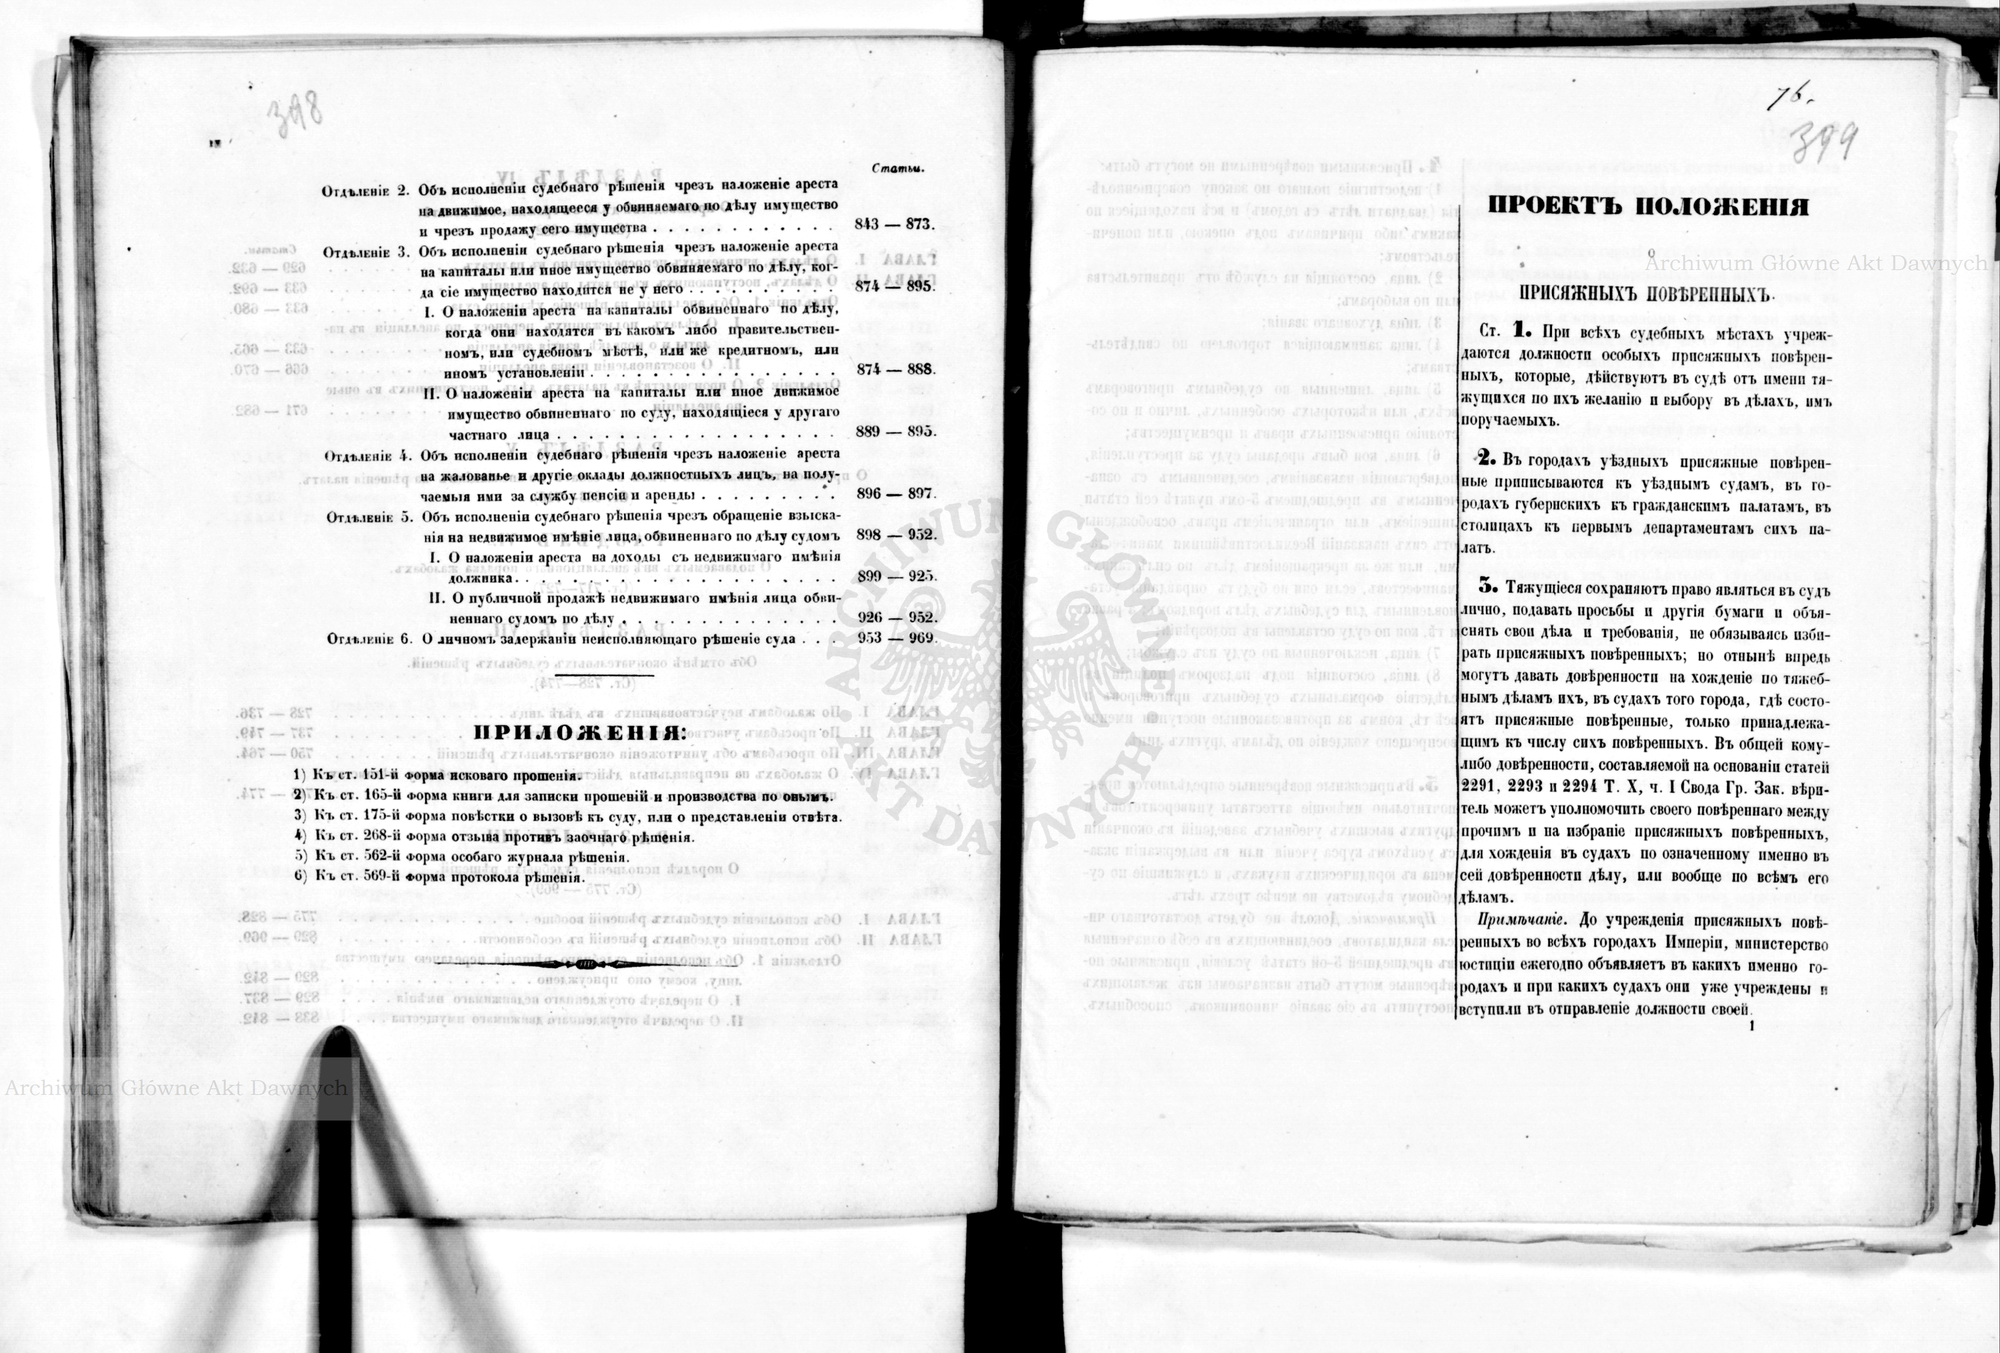 398
IV
Статьи.
Отдѣленіе 2. Объ исполненіи судебнаго рѣшенія чрезъ наложеніе ареста
на движимое, находящееся у обвиняемаго по дѣлу имущество
и чрезъ продажу сего имущества . . . . . . . . . . . . 843 — 873.
Отдѣленіе 3. Объ исполненіи судебнаго рѣшенія чрезъ наложеніе ареста
на капиталы или иное имущество обвиняемаго по дѣлу, ког-
да сіе имущество находится не у него . . . . . . . . . . 874 — 895.
I. О наложеніи ареста на капиталы обвиненнаго по дѣлу,
когда они находятся въ какомъ либо правительствен-
номъ, или судебномъ мѣстѣ, или же кредитномъ, или
иномъ установленіи . . . . . . . . . . . . . . . . 874 — 888.
II. О наложеніи ареста на капиталы или иное движимое
имущество обвиненнаго по суду, находящіеся у другаго
частнаго лица . . . . . . . . . . . . . . . . . . 889 — 895.
Отдѣленіе 4. Объ исполненіи судебнаго рѣшенія чрезъ наложеніе ареста
на жалованье и другіе оклады должностныхъ лицъ, на полу-
чаемыя ими за службу пенсіи и аренды . . . . . . . . . 896 — 897.
Отдѣленіе 5. Объ исполненіи судебнаго рѣшенія чрезъ обращеніе взыска-
нія на недвижимое имѣніе лица, обвиненнаго по дѣлу судомъ 898 — 952.
I. О наложеніи ареста на доходы съ недвижимаго имѣнія
должника. . . . . . . . . . . . . . . . . . . . . 899 — 925.
II. О публичной продажѣ недвижимаго имѣнія лица обви-
неннаго судомъ по дѣлу . . . . . . . . . . . . . . 926 — 952.
Отдѣленіе 6. О личномъ задержаніи неисполняющаго рѣшеніе суда . . . 953 — 969.
ПРИЛОЖЕНІЯ:
1) Къ ст. 151-й форма исковаго прошенія.
2) Къ ст. 165-й форма книги для записки прошеній и производства по онымъ.
3) Къ ст. 175-й форма повѣстки о вызовѣ къ суду, или о представленіи отвѣта.
4) Къ ст. 268-й форма отзыва противъ заочнаго рѣшенія.
5) Къ ст. 562-й форма особаго журнала рѣшенія.
6) Къ ст. 569-й форма протокола рѣшенія.
Archiwum Główne Akt Dawnych
ARCHIWUM GŁÓWNE AKT DAWNYCH
76.
399
ПРОЕКТЪ ПОЛОЖЕНІЯ
о
Archiwum Główne Akt Dawnych
ПРИСЯЖНЫХЪ ПОВѢРЕННЫХЪ.
Ст. 1. При всѣхъ судебныхъ мѣстахъ учреж-
даются должности особыхъ присяжныхъ повѣрен-
ныхъ, которые, дѣйствуютъ въ судѣ отъ имени тя-
жущихся по ихъ желанію и выбору въ дѣлахъ, имъ
поручаемыхъ.
2. Въ городахъ уѣздныхъ присяжные повѣрен-
ные приписываются къ уѣзднымъ судамъ, въ го-
родахъ губернскихъ къ гражданскимъ палатамъ, въ
столицахъ къ первымъ департаментамъ сихъ па-
латъ.
3. Тяжущіеся сохраняютъ право являться въ судъ
лично, подавать просьбы и другія бумаги и объя-
снять свои дѣла и требованія, не обязываясь изби-
рать присяжныхъ повѣренныхъ; но отнынѣ впредь
могутъ давать довѣренности на хожденіе по тяжеб-
нымъ дѣламъ ихъ, въ судахъ того города, гдѣ состо-
ятъ присяжные повѣренные, только принадлежа-
щимъ къ числу сихъ повѣренныхъ. Въ общей кому-
либо довѣренности, составляемой на основаніи статей
2291, 2293 и 2294 Т. X, ч. I Свода Гр. Зак. вѣри-
тель можетъ уполномочить своего повѣреннаго между
прочимъ и на избраніе присяжныхъ повѣренныхъ,
для хожденія въ судахъ по означенному именно въ
сей довѣренности дѣлу, или вообще по всѣмъ его
дѣламъ.
Примѣчаніе. До учрежденія присяжныхъ повѣ-
ренныхъ во всѣхъ городахъ Имперіи, министерство
юстиціи ежегодно объявляетъ въ какихъ именно го-
родахъ и при какихъ судахъ они уже учреждены и
вступили въ отправленіе должности своей.
1